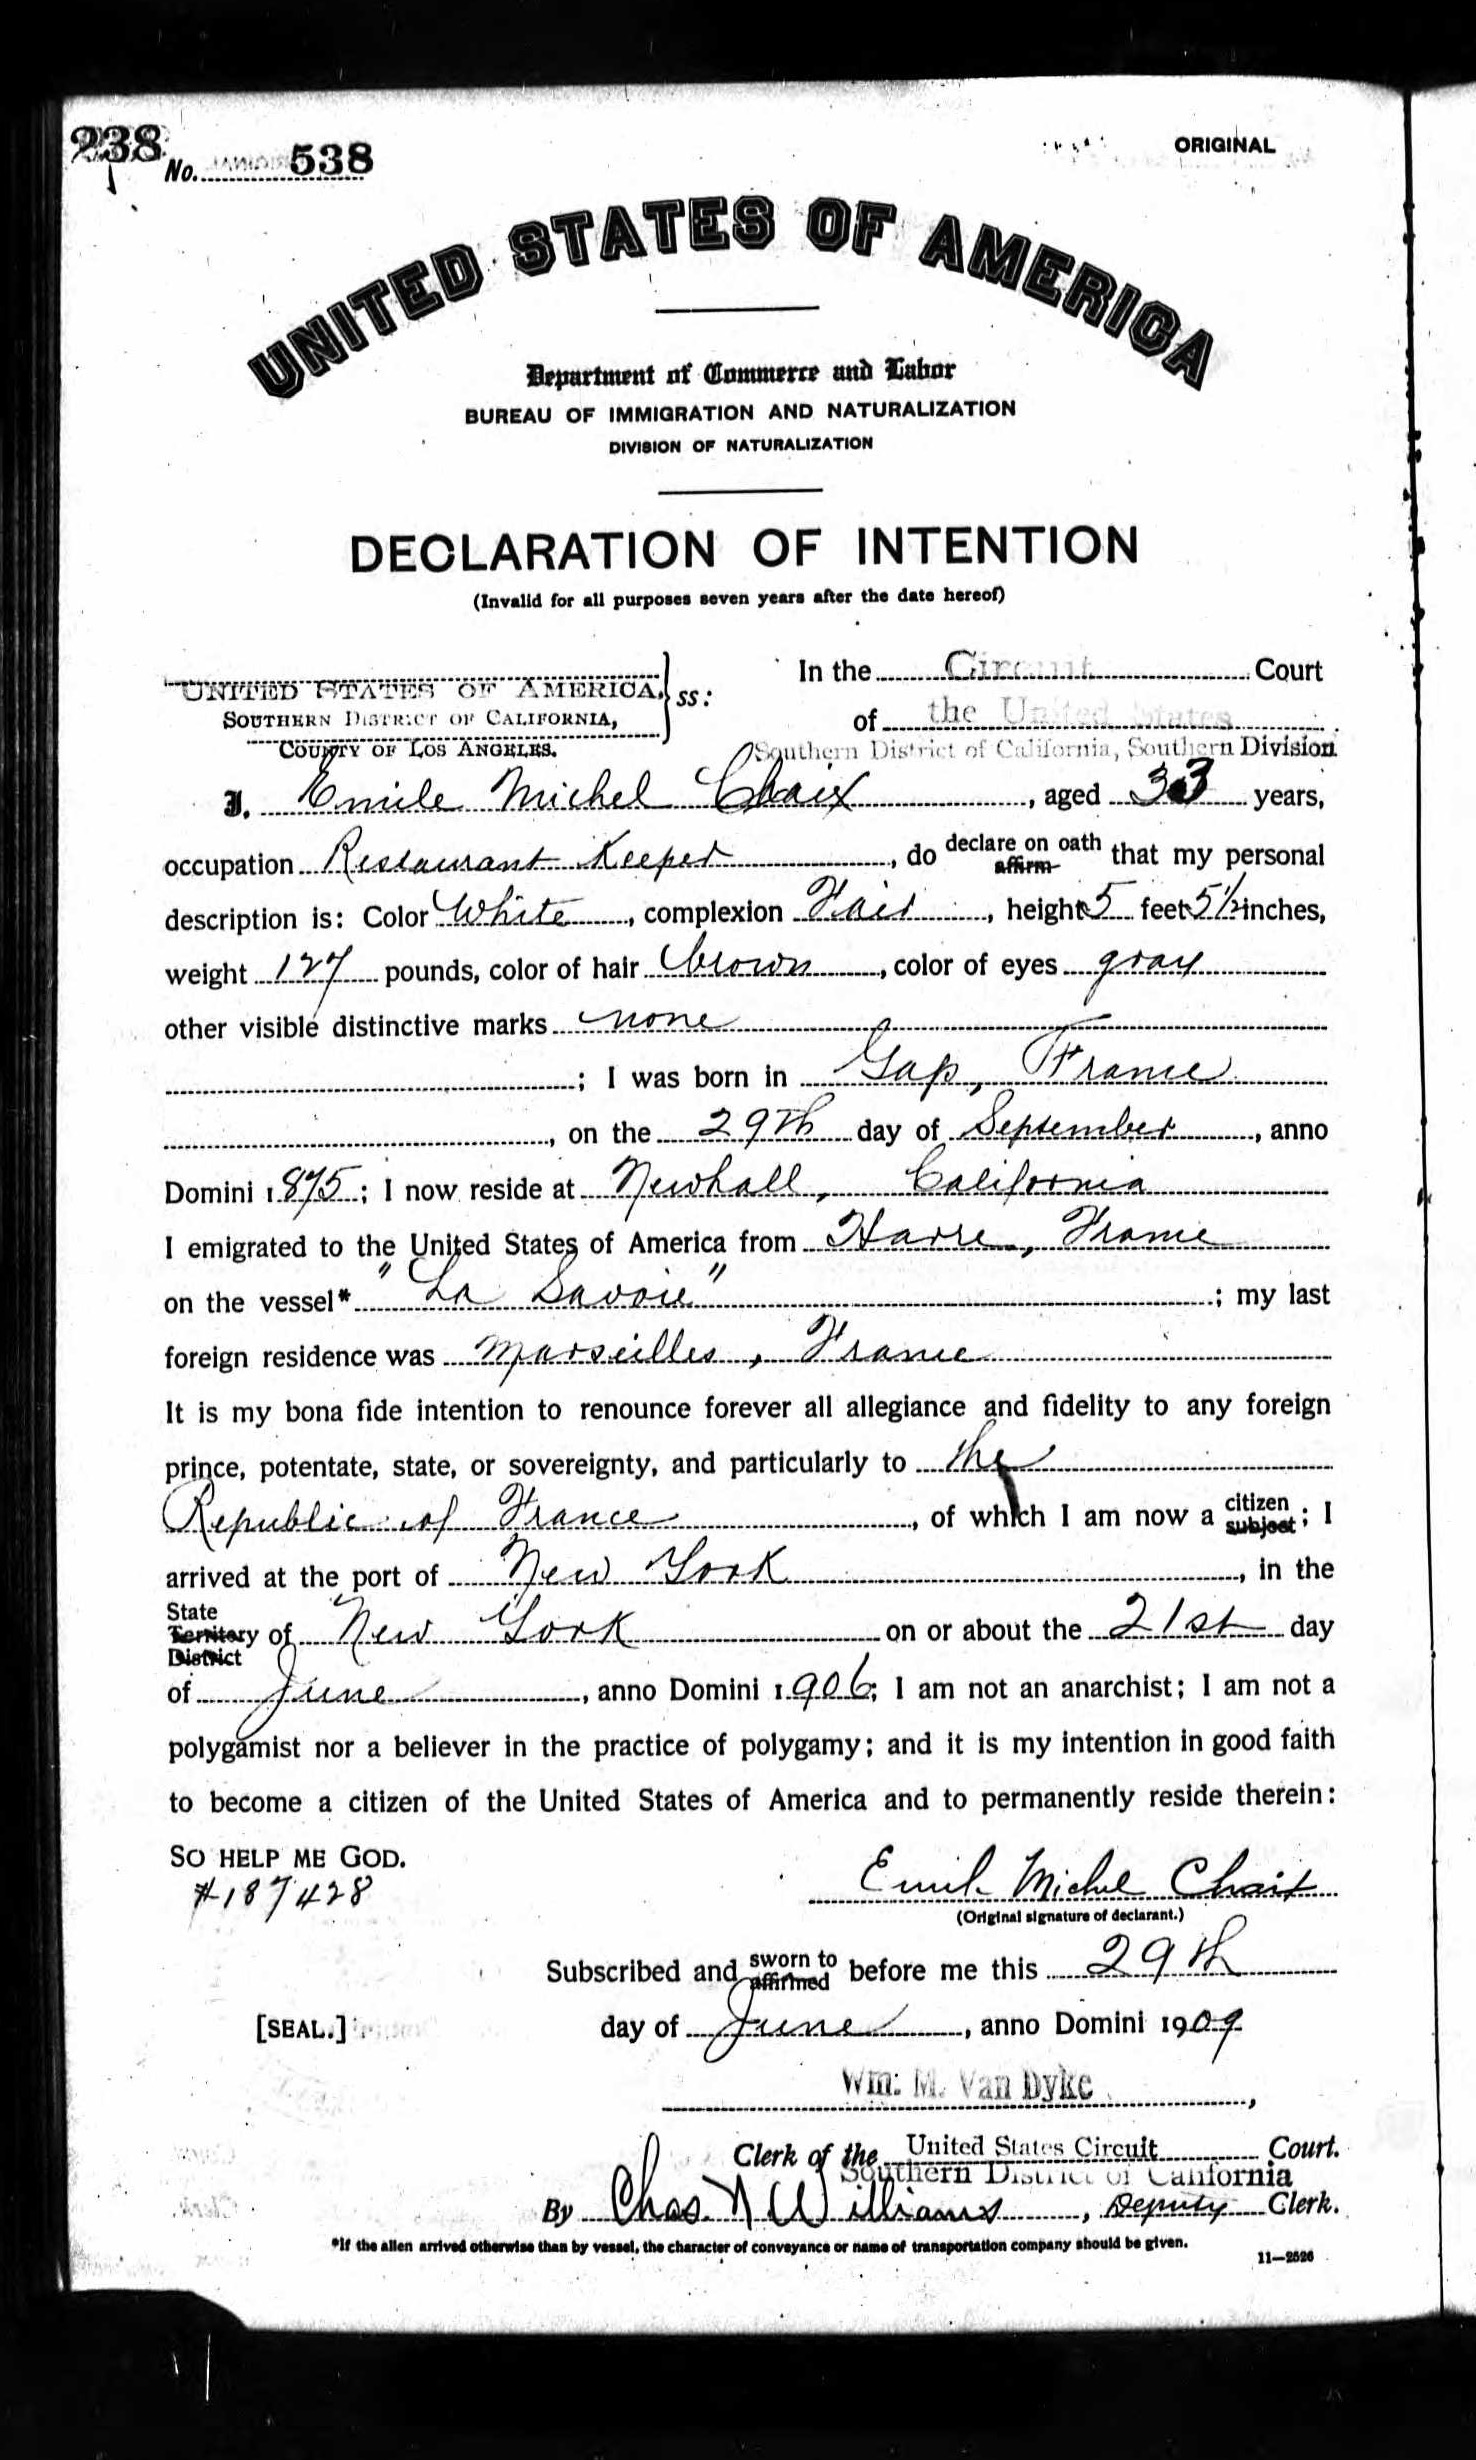 238
No. 538
ORIGINAL
UNITED STATES OF AMERICA
Department of Commerce and Labor
BUREAU OF IMMIGRATION AND NATURALIZATION
DIVISION OF NATURALIZATION
DECLARATION OF INTENTION
(Invalid for all purposes seven years after the date hereof)
UNITED STATES OF AMERICA, ss: In the Circuit Court
SOUTHERN DISTRICT OF CALIFORNIA, of the United States
COUNTY OF LOS ANGELES. Southern District of California, Southern Division
I, Emile Michel Chaix, aged 33 years,
occupation Restaurant Keeper, do declare on oath affirm that my personal
description is: Color White, complexion Fair, height 5 feet 5½ inches,
weight 127 pounds, color of hair brown, color of eyes gray
other visible distinctive marks none
; I was born in Gap, France
, on the 29th day of September, anno
Domini 1875; I now reside at Newhall, California
I emigrated to the United States of America from Havre, France
on the vessel* "La Savoie"; my last
foreign residence was Marseilles, France
It is my bona fide intention to renounce forever all allegiance and fidelity to any foreign
prince, potentate, state, or sovereignty, and particularly to the
Republic of France, of which I am now a citizen subject; I
arrived at the port of New York, in the
State Territory District of New York on or about the 21st day
of June, anno Domini 1906; I am not an anarchist; I am not a
polygamist nor a believer in the practice of polygamy; and it is my intention in good faith
to become a citizen of the United States of America and to permanently reside therein:
SO HELP ME GOD.
#187428
Emile Michel Chaix
(Original signature of declarant.)
Subscribed and sworn to affirmed before me this 29th
[SEAL.] day of June, anno Domini 1909
Wm. M. Van Dyke,
Clerk of the United States Circuit Court.
Southern District of California
By Chas. N Williams, Deputy Clerk.
*If the alien arrived otherwise than by vessel, the character of conveyance or name of transportation company should be given.
11—2526